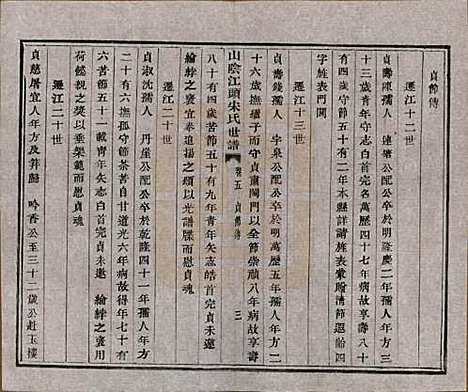 貞節傳
遷江十二世
貞壽陳孺人 連塘公配公卒於明隆慶二年孺人年方三
十三歲青年守志白首完名萬歷四十七年病故享壽八十
有四歲守節五十有二年本縣詳請旌表蒙翰清節遐齡四
字旌表門閭
遷江十三世
貞壽錢孺人 宇泉公配公卒於明萬歷五年孺人年方二
十六歲撫孀子而守貞肅閫門以全節崇禎八年病故享壽
山陰江頭宋氏世譜 卷五 貞節傳 三
八十有四歲守節五十有九年青年矢志皓首完貞未邀
綸綍之褒宜奉追揚之頌以光譜牒而慰貞魂
遷江二十世
貞淑沈孺人 丹崖公配公卒於乾隆四十一年孺人年方
二十有六撫孤守節茶苦自甘道光六年病故得年七十有
六苦節五十一載青年矢志白首完貞未邀 綸綍之褒用
荷懿親之獎以垂榘範而慰貞魂
遷江二十世
貞慈屠宜人年方及笄歸 吟香公至三十二歲公赴玉樓